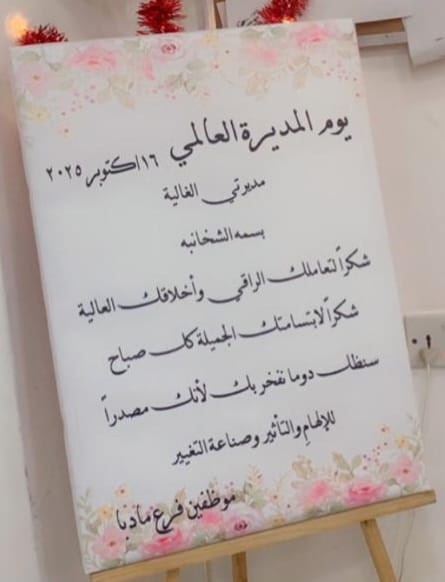 يوم المديرة العالمي ١٦ اكتوبر ٢٠٢٥
مديرتي الغالية
بسمه الشخانبه
شكراً لتعاملك الراقي وأخلاقك العالية
شكراً لابتسامتك الجميلة كل صباح
سنظل دوما نفخر بك لأنك مصدراً
للإلهام والتأثير وصناعة التغيير
موظفين فرع مادبا